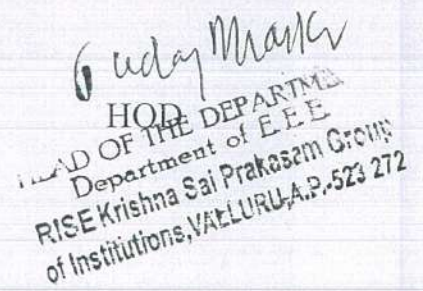 HOD
HEAD OF THE DEPARTME
Department of E E E
RISE Krishna Sai Prakasam Group
of Institutions, VALLURU, A.P.-523 272